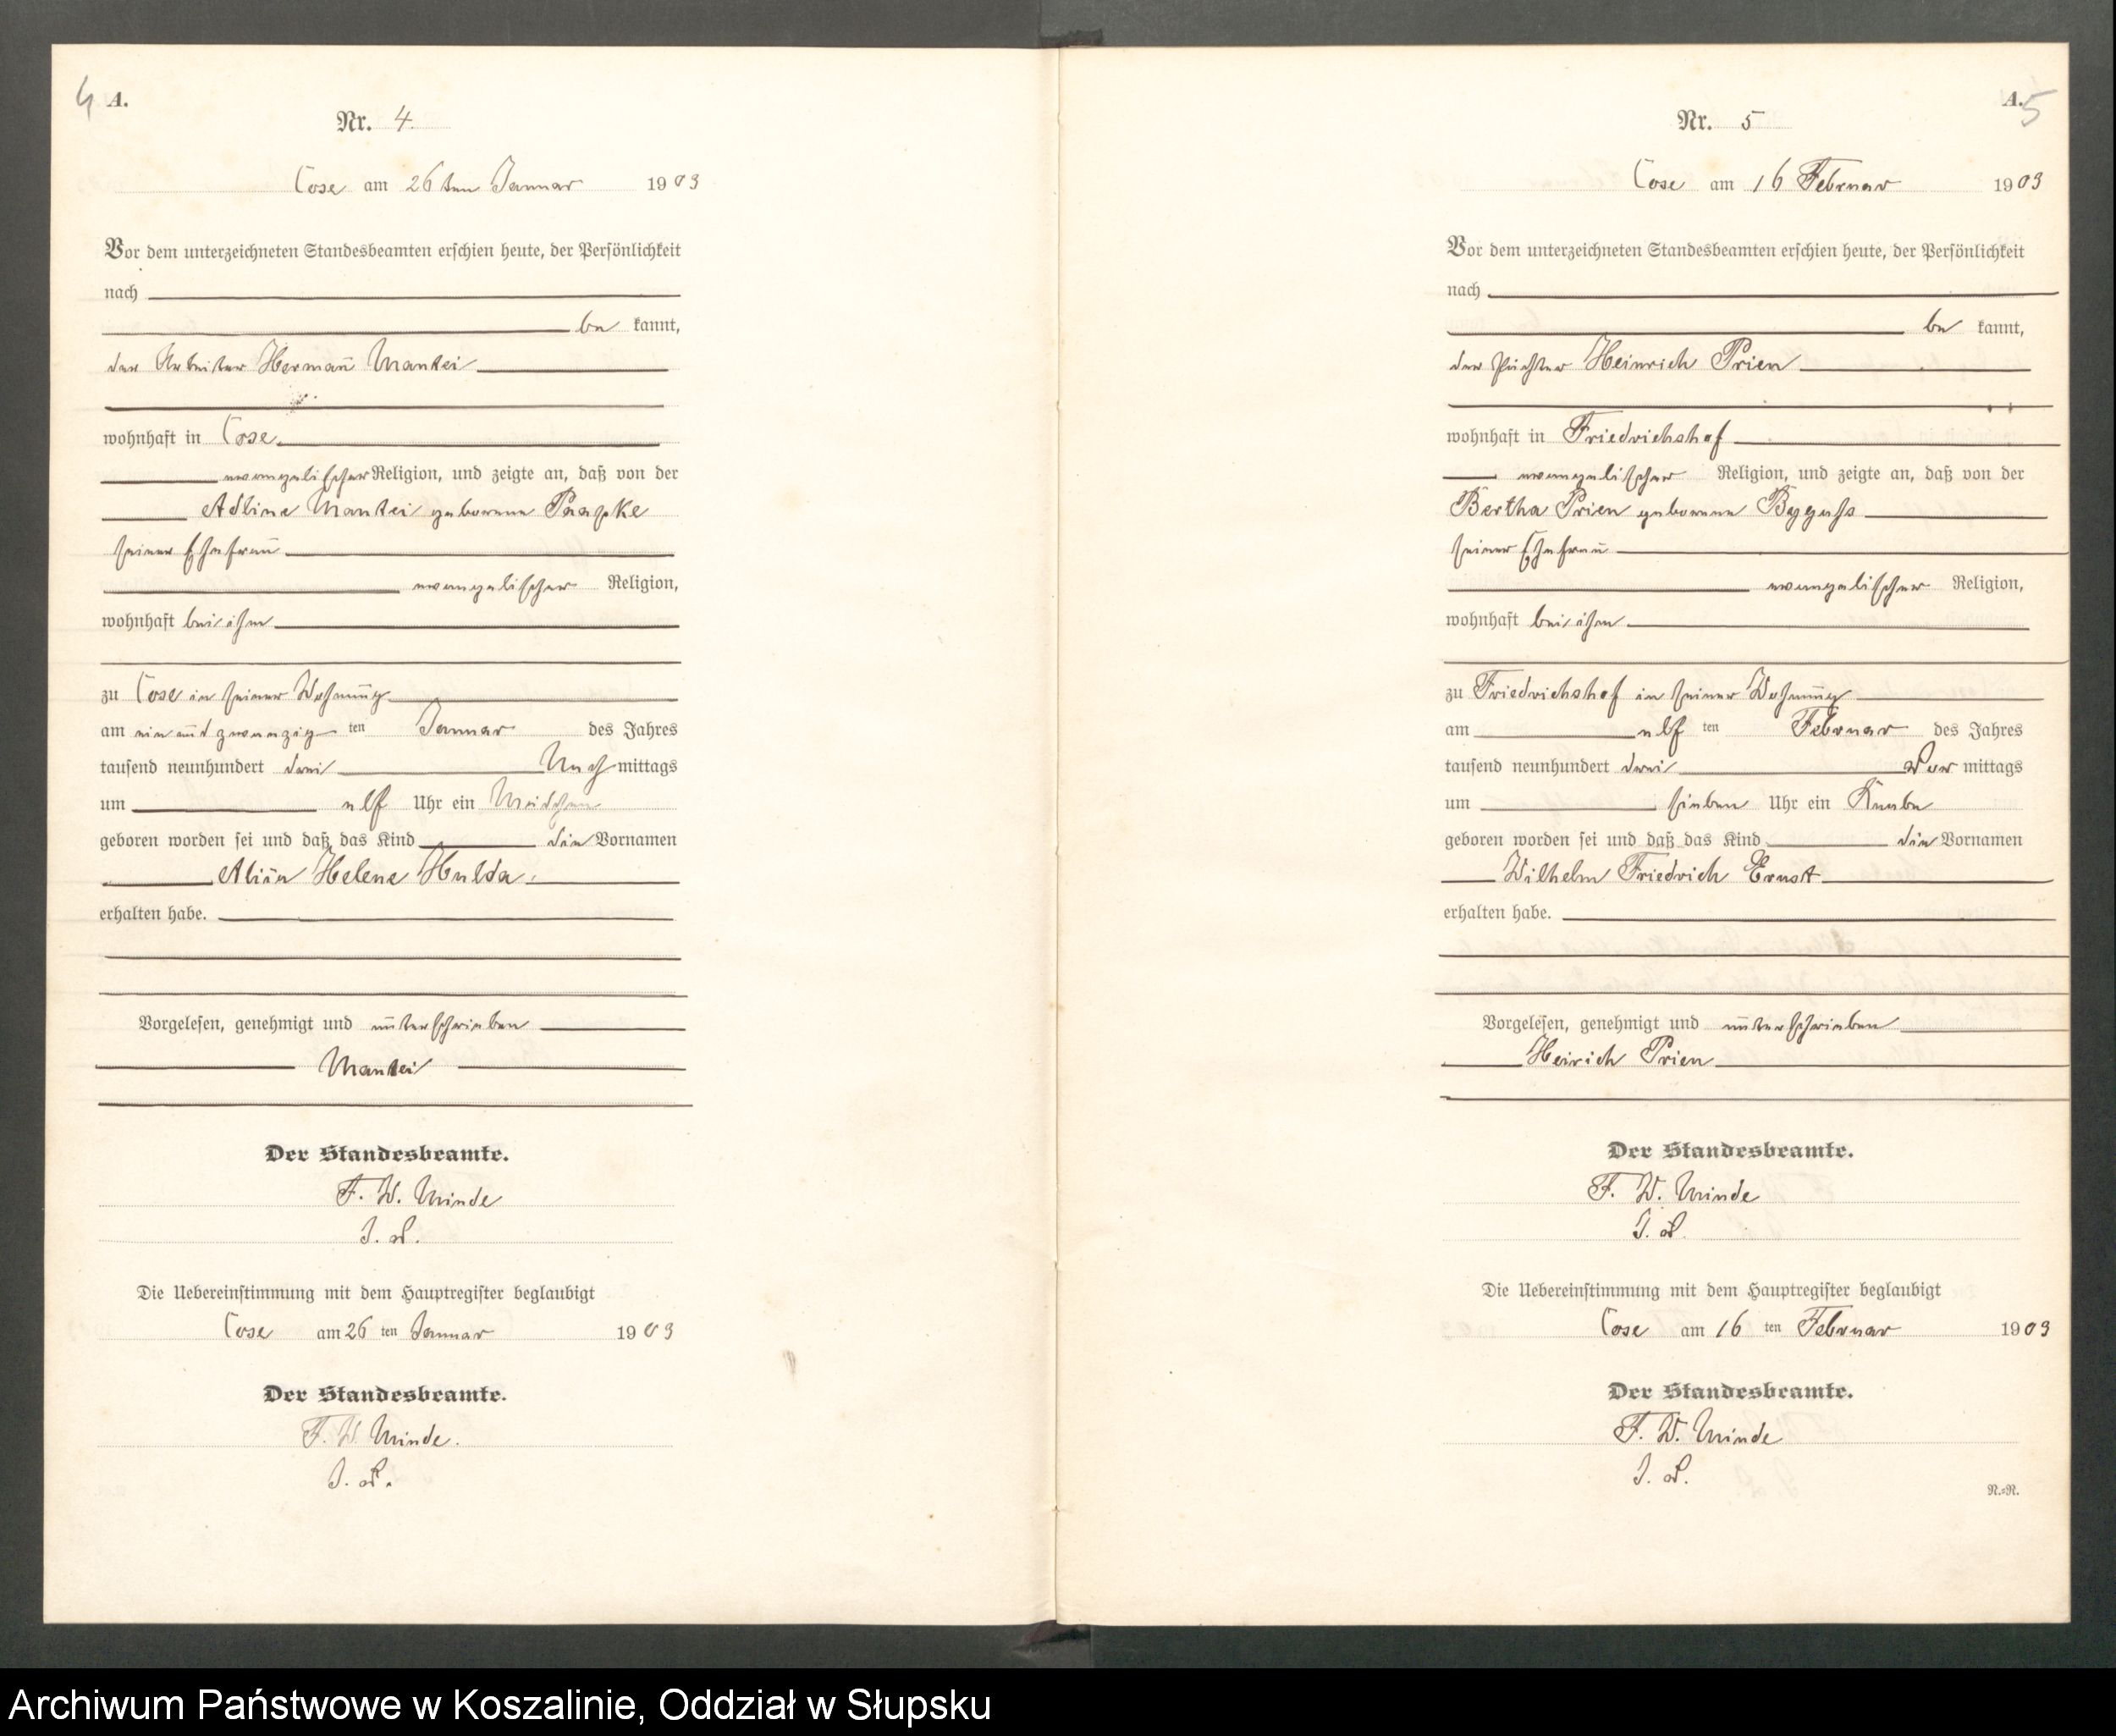 4 A.
Nr. 4.
Cose am 26ten Januar 1903
Vor dem unterzeichneten Standesbeamten erschien heute, der Persönlichkeit
nach
be kannt,
der Arbeiter Hermann Mantei
wohnhaft in Cose
evangelischer Religion, und zeigte an, daß von der
Adline Mantei geborene Paapke
seiner Ehefrau
evangelischer Religion,
wohnhaft bei ihm
zu Cose in seiner Wohnung
am ein und zwanzig ten Januar des Jahres
tausend neunhundert drei Nach mittags
um elf Uhr ein Mädchen
geboren worden sei und daß das Kind die Vornamen
Helene Hulda
erhalten habe.
Vorgelesen, genehmigt und unterschrieben
Mantei
Der Standesbeamte.
F. W. Minde
J. V.
Die Uebereinstimmung mit dem Hauptregister beglaubigt
Cose am 26 ten Januar 1903
Der Standesbeamte.
F. W. Minde.
J. V.
A. 5
Nr. 5
Cose am 16 Februar 1903
Vor dem unterzeichneten Standesbeamten erschien heute, der Persönlichkeit
nach
be kannt,
der Pächter Heinrich Prien
wohnhaft in Friedrichshof
evangelischer Religion, und zeigte an, daß von der
Bertha Prien geborene
seiner Ehefrau
evangelischer Religion,
wohnhaft bei ihm
zu Friedrichshof in seiner Wohnung
am elf ten Februar des Jahres
tausend neunhundert drei Vor mittags
um sieben Uhr ein Knabe
geboren worden sei und daß das Kind die Vornamen
Wilhelm Friedrich Ernst
erhalten habe.
Vorgelesen, genehmigt und unterschrieben
Heirich Prien
Der Standesbeamte.
F. W. Minde
J. V.
Die Uebereinstimmung mit dem Hauptregister beglaubigt
Cose am 16 ten Februar 1903
Der Standesbeamte.
F. W. Minde
J. V.
N.=R.
Archiwum Państwowe w Koszalinie, Oddział w Słupsku